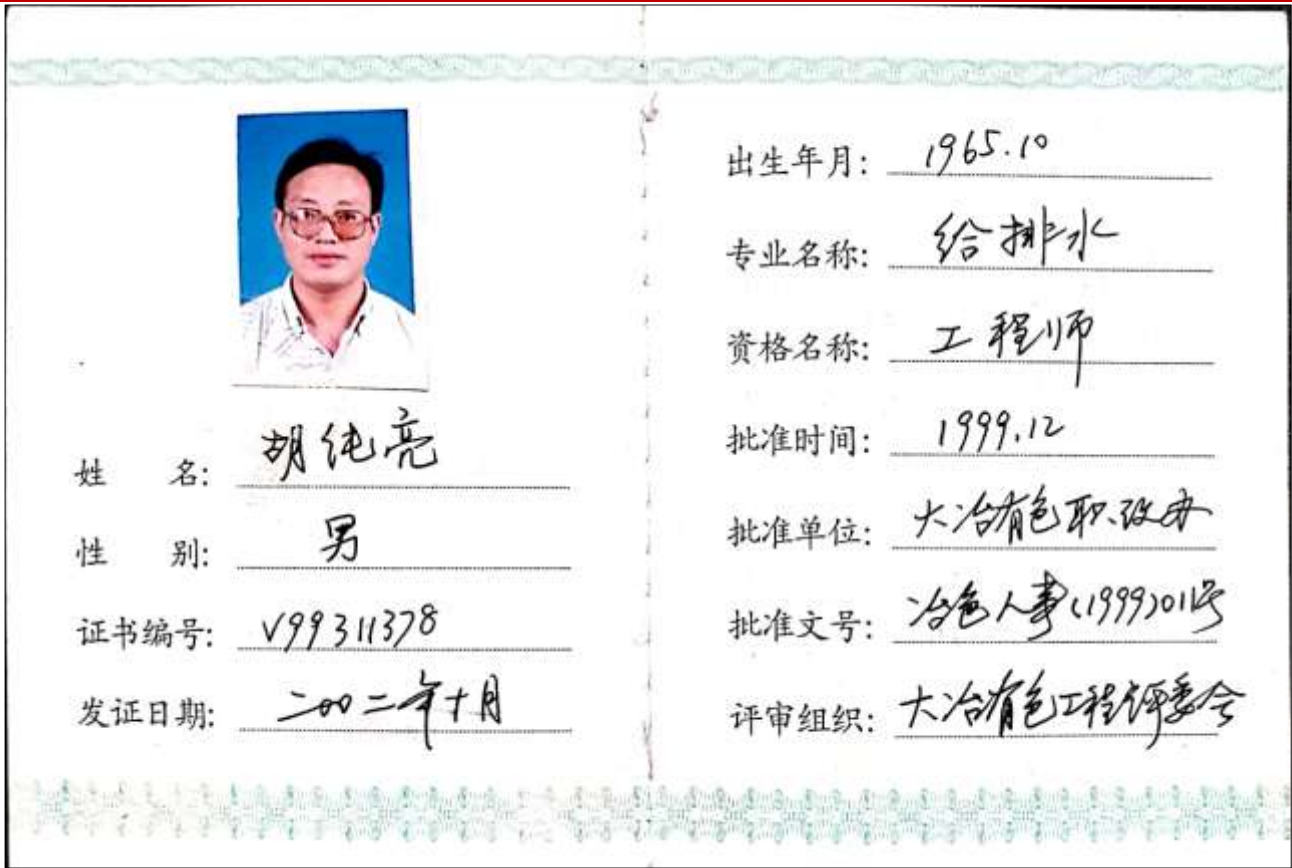 姓 名: 胡纯亮
性 别: 男
证书编号: V99311378
发证日期: 二00二年十月
出生年月: 1965.10
专业名称: 给排水
资格名称: 工程师
批准时间: 1999.12
批准单位: 大冶有色职改办
批准文号: 冶色人事(1999)011号
评审组织: 大冶有色工程评委会